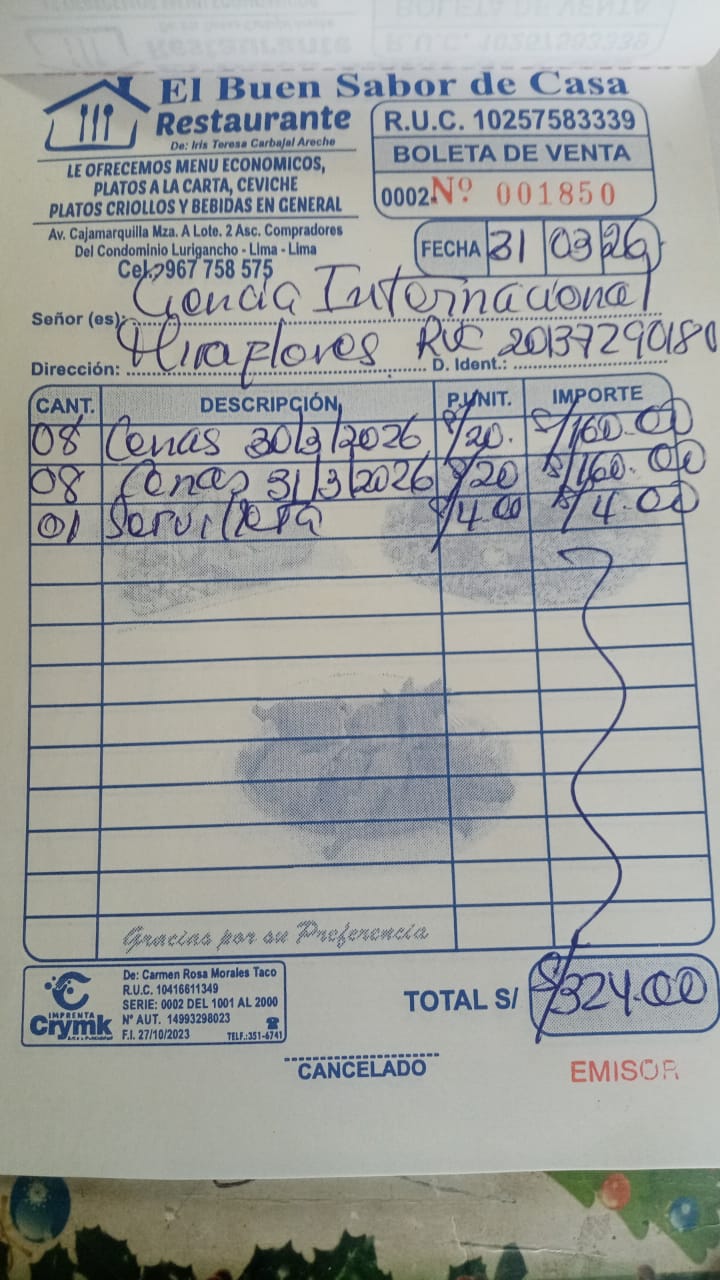 El Buen Sabor de Casa
Restaurante
De: Iris Teresa Carbajal Areche
LE OFRECEMOS MENU ECONOMICOS,
PLATOS A LA CARTA, CEVICHE
PLATOS CRIOLLOS Y BEBIDAS EN GENERAL
Av. Cajamarquilla Mza. A Lote. 2 Asc. Compradores
Del Condominio Lurigancho - Lima - Lima
Cel.: 967 758 575
R.U.C. 10257583339
BOLETA DE VENTA
0002- Nº 001850
FECHA 31 03 26
Señor (es): Ciencia Internacional
Dirección: Miraflores D. Ident.: RUC 20137290180
CANT. DESCRIPCIÓN P.UNIT. IMPORTE
08 Cenas 30/3/2026 S/20. S/160.00
08 Cenas 31/3/2026 S/20 S/160.00
01 Servilleta S/4.00 S/4.00
Gracias por su Preferencia
IMPRENTA
Crymk
De: Carmen Rosa Morales Taco
R.U.C. 10416611349
SERIE: 0002 DEL 1001 AL 2000
Nº AUT. 14993298023
F.I. 27/10/2023 TELF.:351-6741
TOTAL S/ S/324.00
CANCELADO
EMISOR